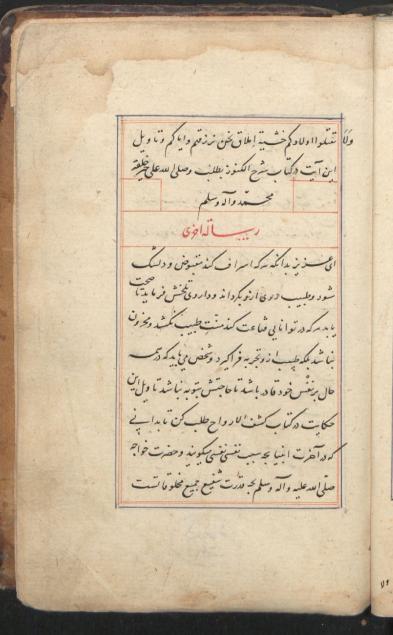 ولا تقتلوا اولادکم خشیة إملاق نحن نرزقهم وایاکم و تاویل
این آیت در کتاب شرح الکنوز بطلب وصلی الله علی خیر خلقه
محمد وآله وسلم
رسالة اخری
ای عزیز بدانکه هر که اسراف کند مقبوض و دلتنک
شود وطبیب روی ازو بکرداند و داروی تلخش فرماید تا صحت
یابد هر که در توانایی قناعت کند منت طبیب نکشد و محزون
نباشد بلکه طبیب ازو تجربه فراکیرد و شخص می باید که در همه
حال بر نفس خود قادر باشد تا حاجتش بتوبه نباشد تاویل این
حکایت در کتاب کشف الارواح طلب کن تا بدانی
که در آخرت انبیا بچه سبب نفسی نفسی میکویند و حضرت خواجه
صلی الله علیه وآله وسلم بچه قدرت شفیع جمیع مخلوقاتست